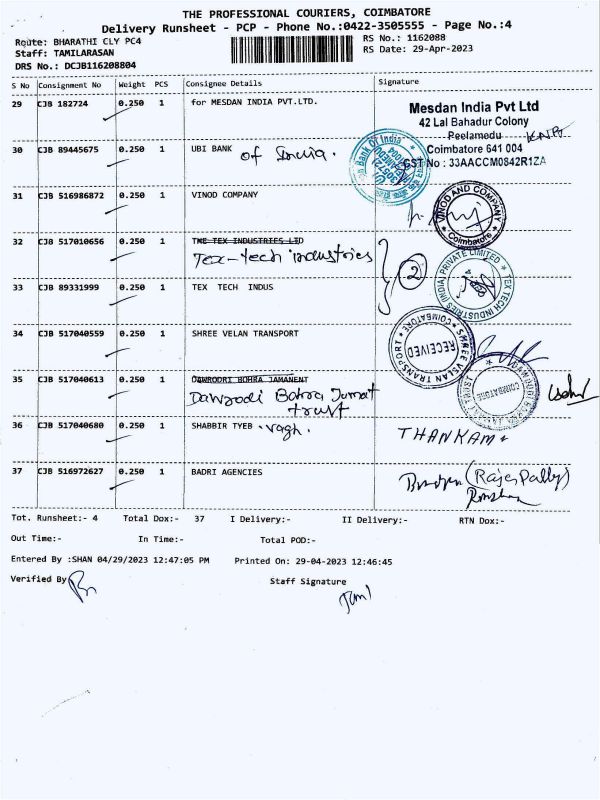 THE PROFESSIONAL COURIERS, COIMBATORE
Delivery Runsheet - PCP - Phone No.:0422-3505555 - Page No.:4
Route: BHARATHI CLY PC4 RS No.: 1162088
Staff: TAMILARASAN RS Date: 29-Apr-2023
DRS No.: DCJB116208804
S No Consignment No Weight PCS Consignee Details Signature
29 CJB 182724 0.250 1 for MESDAN INDIA PVT.LTD.
Mesdan India Pvt Ltd
42 Lal Bahadur Colony
Peelamedu
Coimbatore 641 004
GST No : 33AACCM0842R1ZA
30 CJB 89445675 0.250 1 UBI BANK of India.
31 CJB 516986872 0.250 1 VINOD COMPANY
VINOD AND COMPANY
Coimbatore
32 CJB 517010656 0.250 1 THE TEX INDUSTRIES LTD
Tex-tech industries
2
TEX TECH INDUSTRIES (INDIA) PRIVATE LIMITED
33 CJB 89331999 0.250 1 TEX TECH INDUS
34 CJB 517040559 0.250 1 SHREE VELAN TRANSPORT
SHREE VELAN TRANSPORT
COIMBATORE
RECEIVED
35 CJB 517040613 0.250 1 DAWOODRI BOHRA JAMANENT
Dawoodi Bohra Jumat
trust
COIMBATORE
36 CJB 517040680 0.250 1 SHABBIR TYEB . vagh.
THANKAM
37 CJB 516972627 0.250 1 BADRI AGENCIES
Tot. Runsheet:- 4 Total Dox:- 37 I Delivery:- II Delivery:- RTN Dox:-
Out Time:- In Time:- Total POD:-
Entered By :SHAN 04/29/2023 12:47:05 PM Printed On: 29-04-2023 12:46:45
Verified By Staff Signature